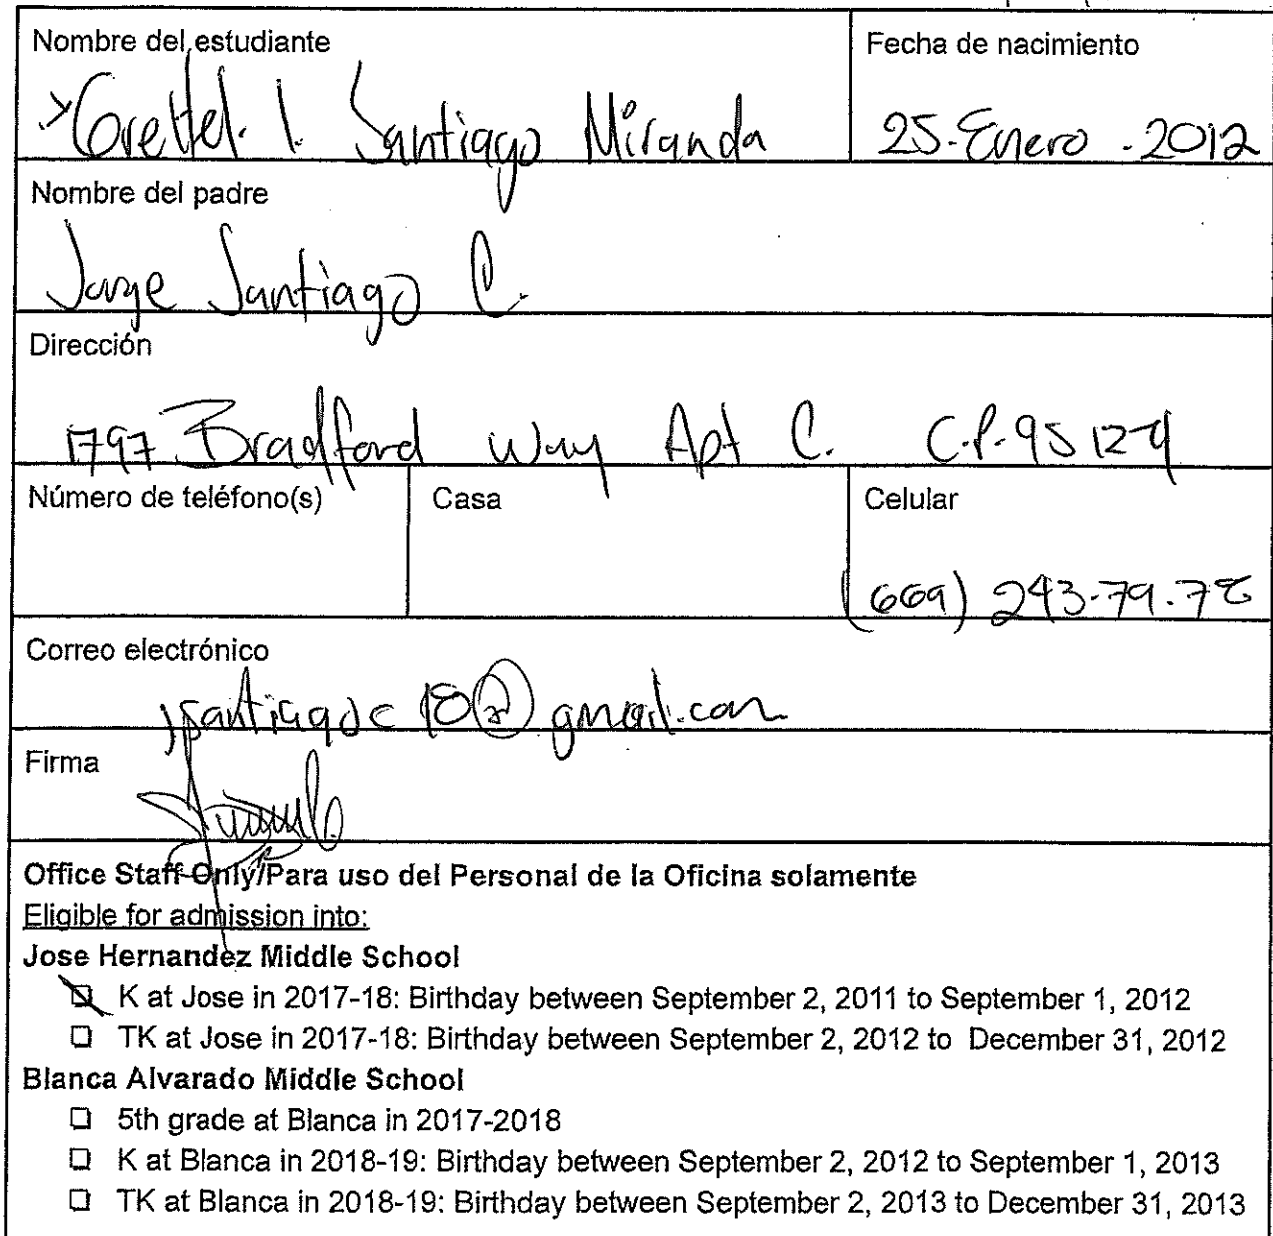 Nombre del estudiante
Fecha de nacimiento
Grettel. I. Santiago Miranda
25-Enero-2012
Nombre del padre
Jorge Santiago C.
Dirección
1797 Bradford way Apt C. C.P. 95124
Número de teléfono(s)
Casa
Celular
(669) 243-79-78
Correo electrónico
jsantiagoc18@gmail.com
Firma
Office Staff Only/Para uso del Personal de la Oficina solamente
Eligible for admission into:
Jose Hernandez Middle School
K at Jose in 2017-18: Birthday between September 2, 2011 to September 1, 2012
TK at Jose in 2017-18: Birthday between September 2, 2012 to December 31, 2012
Blanca Alvarado Middle School
5th grade at Blanca in 2017-2018
K at Blanca in 2018-19: Birthday between September 2, 2012 to September 1, 2013
TK at Blanca in 2018-19: Birthday between September 2, 2013 to December 31, 2013